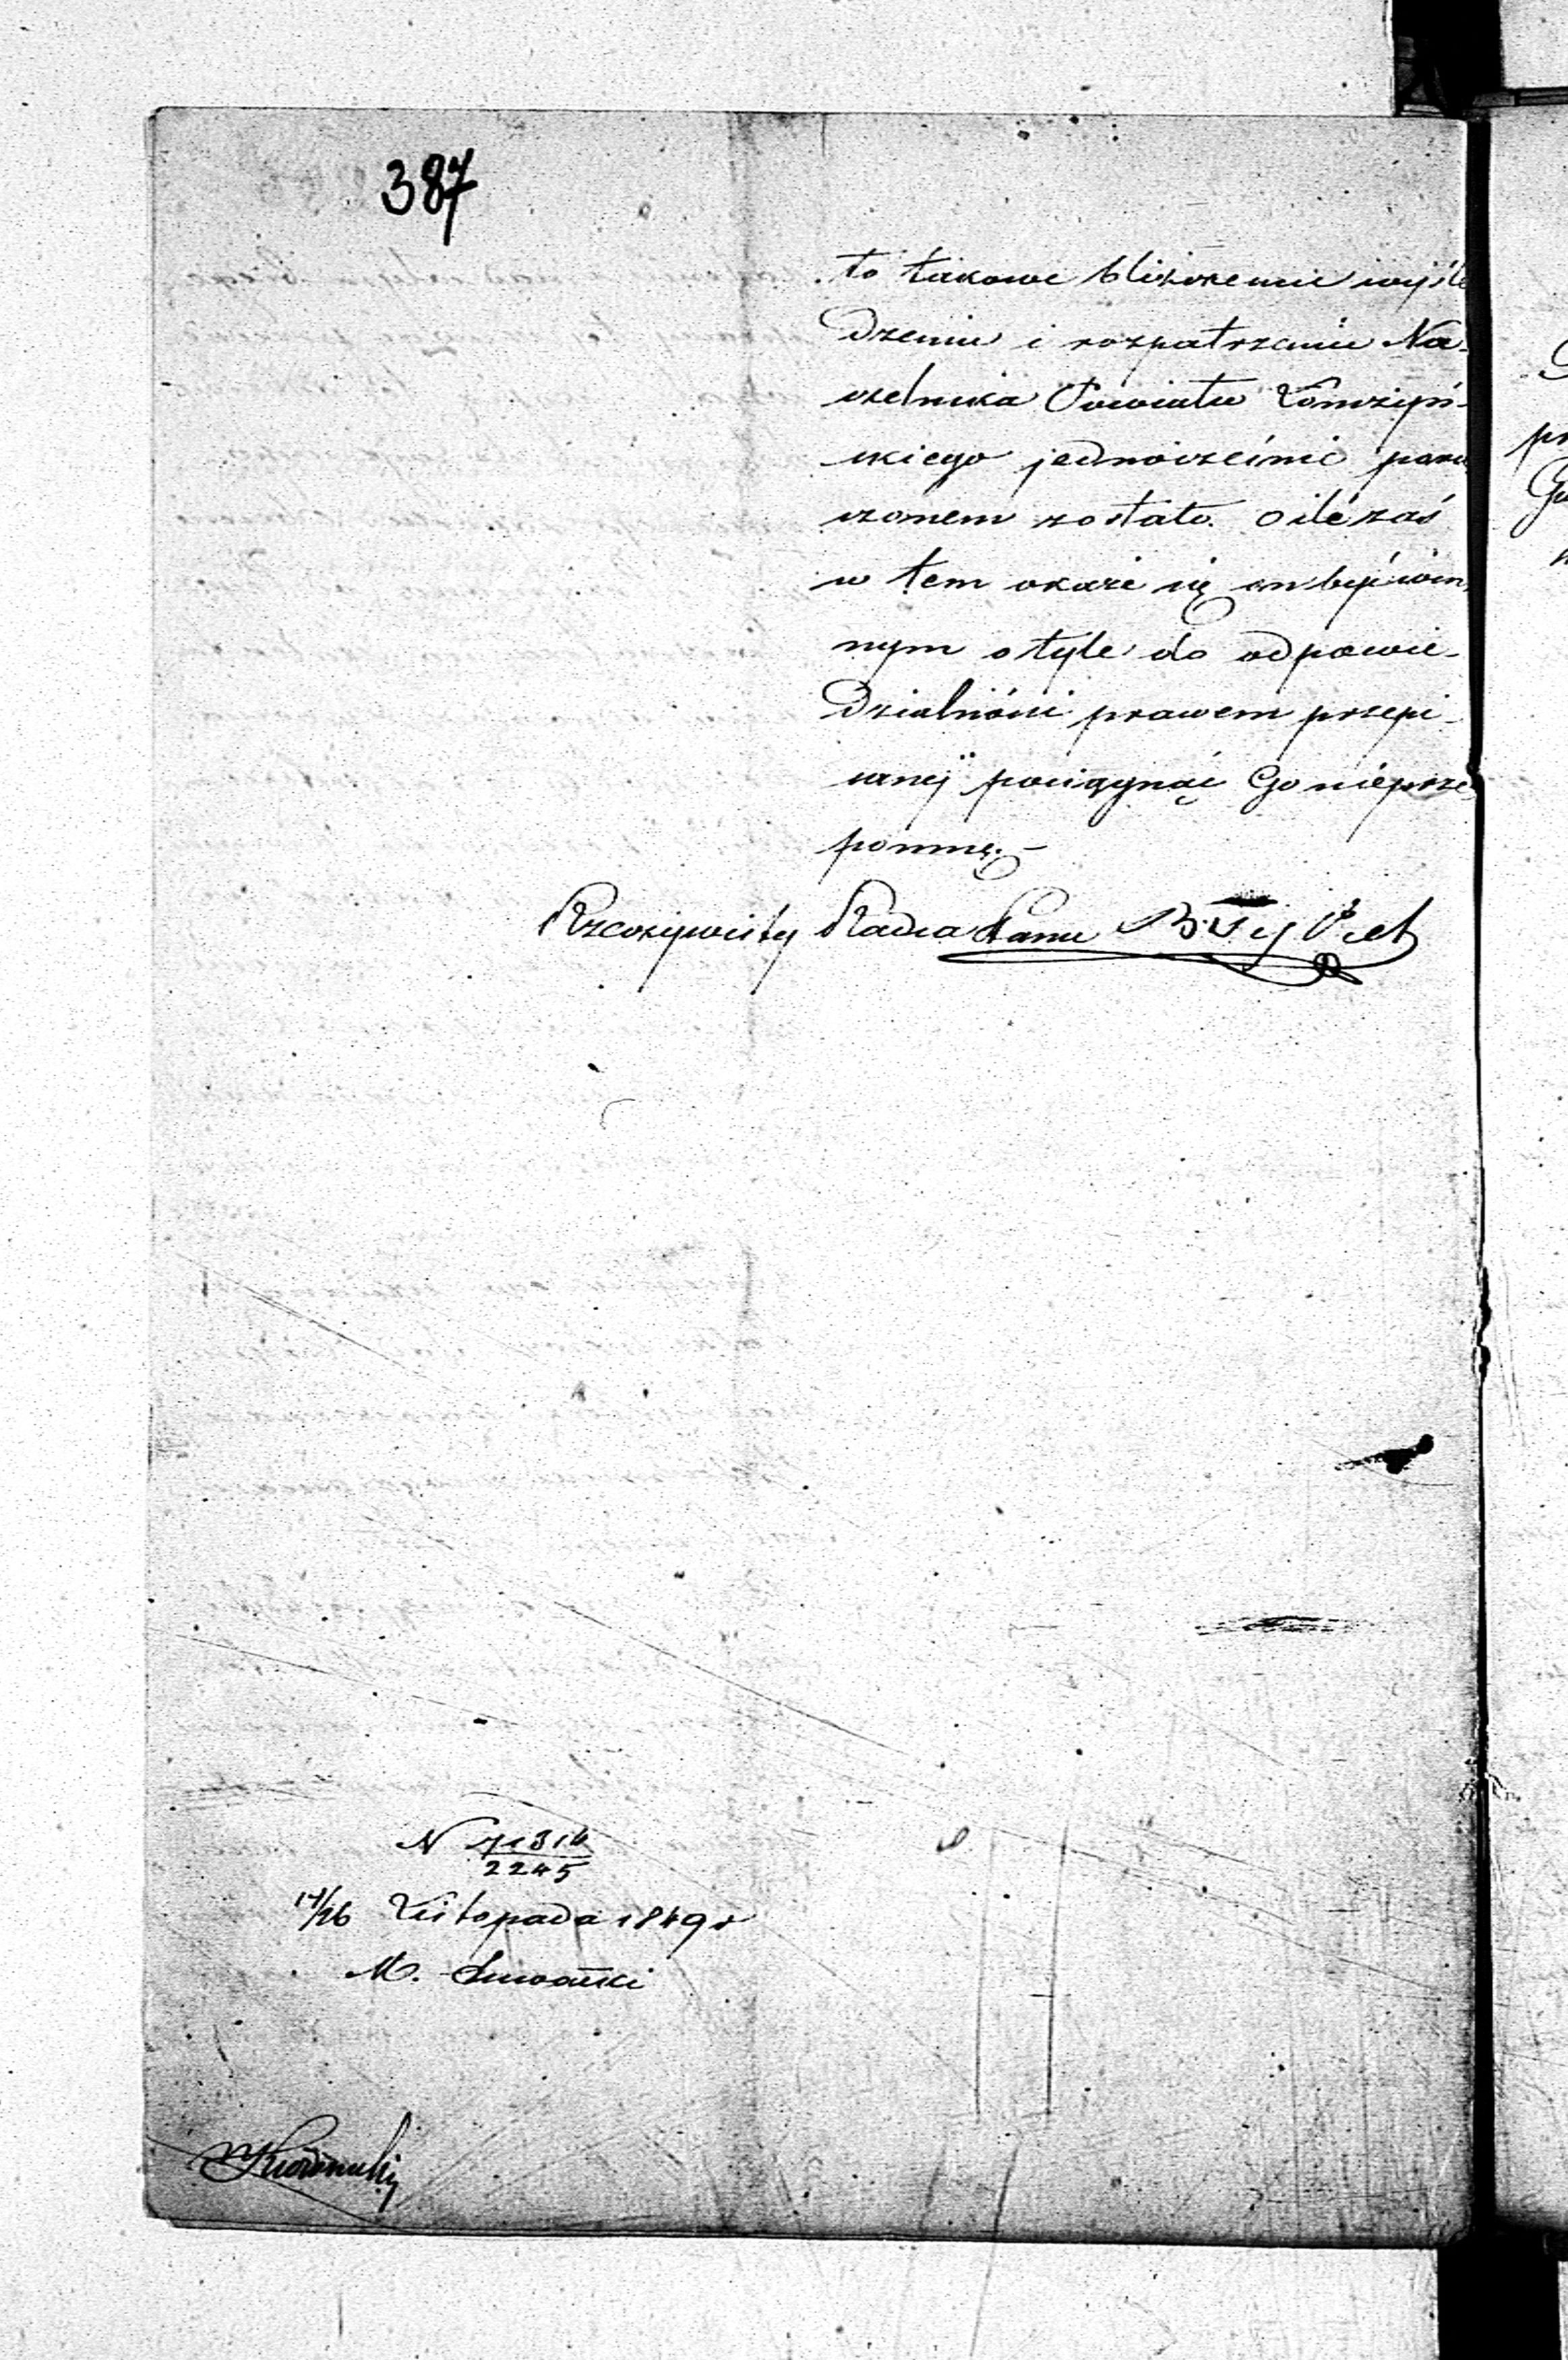 387
to takowe bliższemu wyśle
dzeniu i rozpatrzeniu Na-
czelnika Powiatu Łomżyń-
skiego jednocześnie poru
czonem zostało. o ile zaś
w tem okaże się on być win
nym o tyle do odpowie-
dzialności prawem przepi-
sanej pociągnąć Go nieprze
pomnę. –
Rzeczywisty Radca Stanu
N 71314
2245
14/26 Listopada 1849 r
M. Suwałki